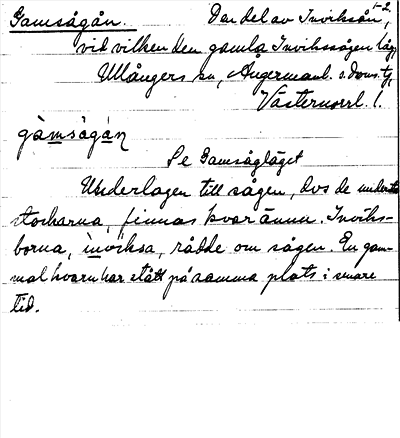 Gamsågån. Den del av Inviksån 1-2,
vid vilken den gamla Invikssågen låg,
Ullångers sn, Ångermanl. s. doms.ty,
Västernorrl. l.
gàmsågán
Se Gamsågläget
Underlagen till sågen, dvs de understa
stockarna, finnas kvar ännu. Inviks-
borna, ìnviksa, rådde om sågen. En gam-
mal kvarn har stått på samma plats i senare
tid.